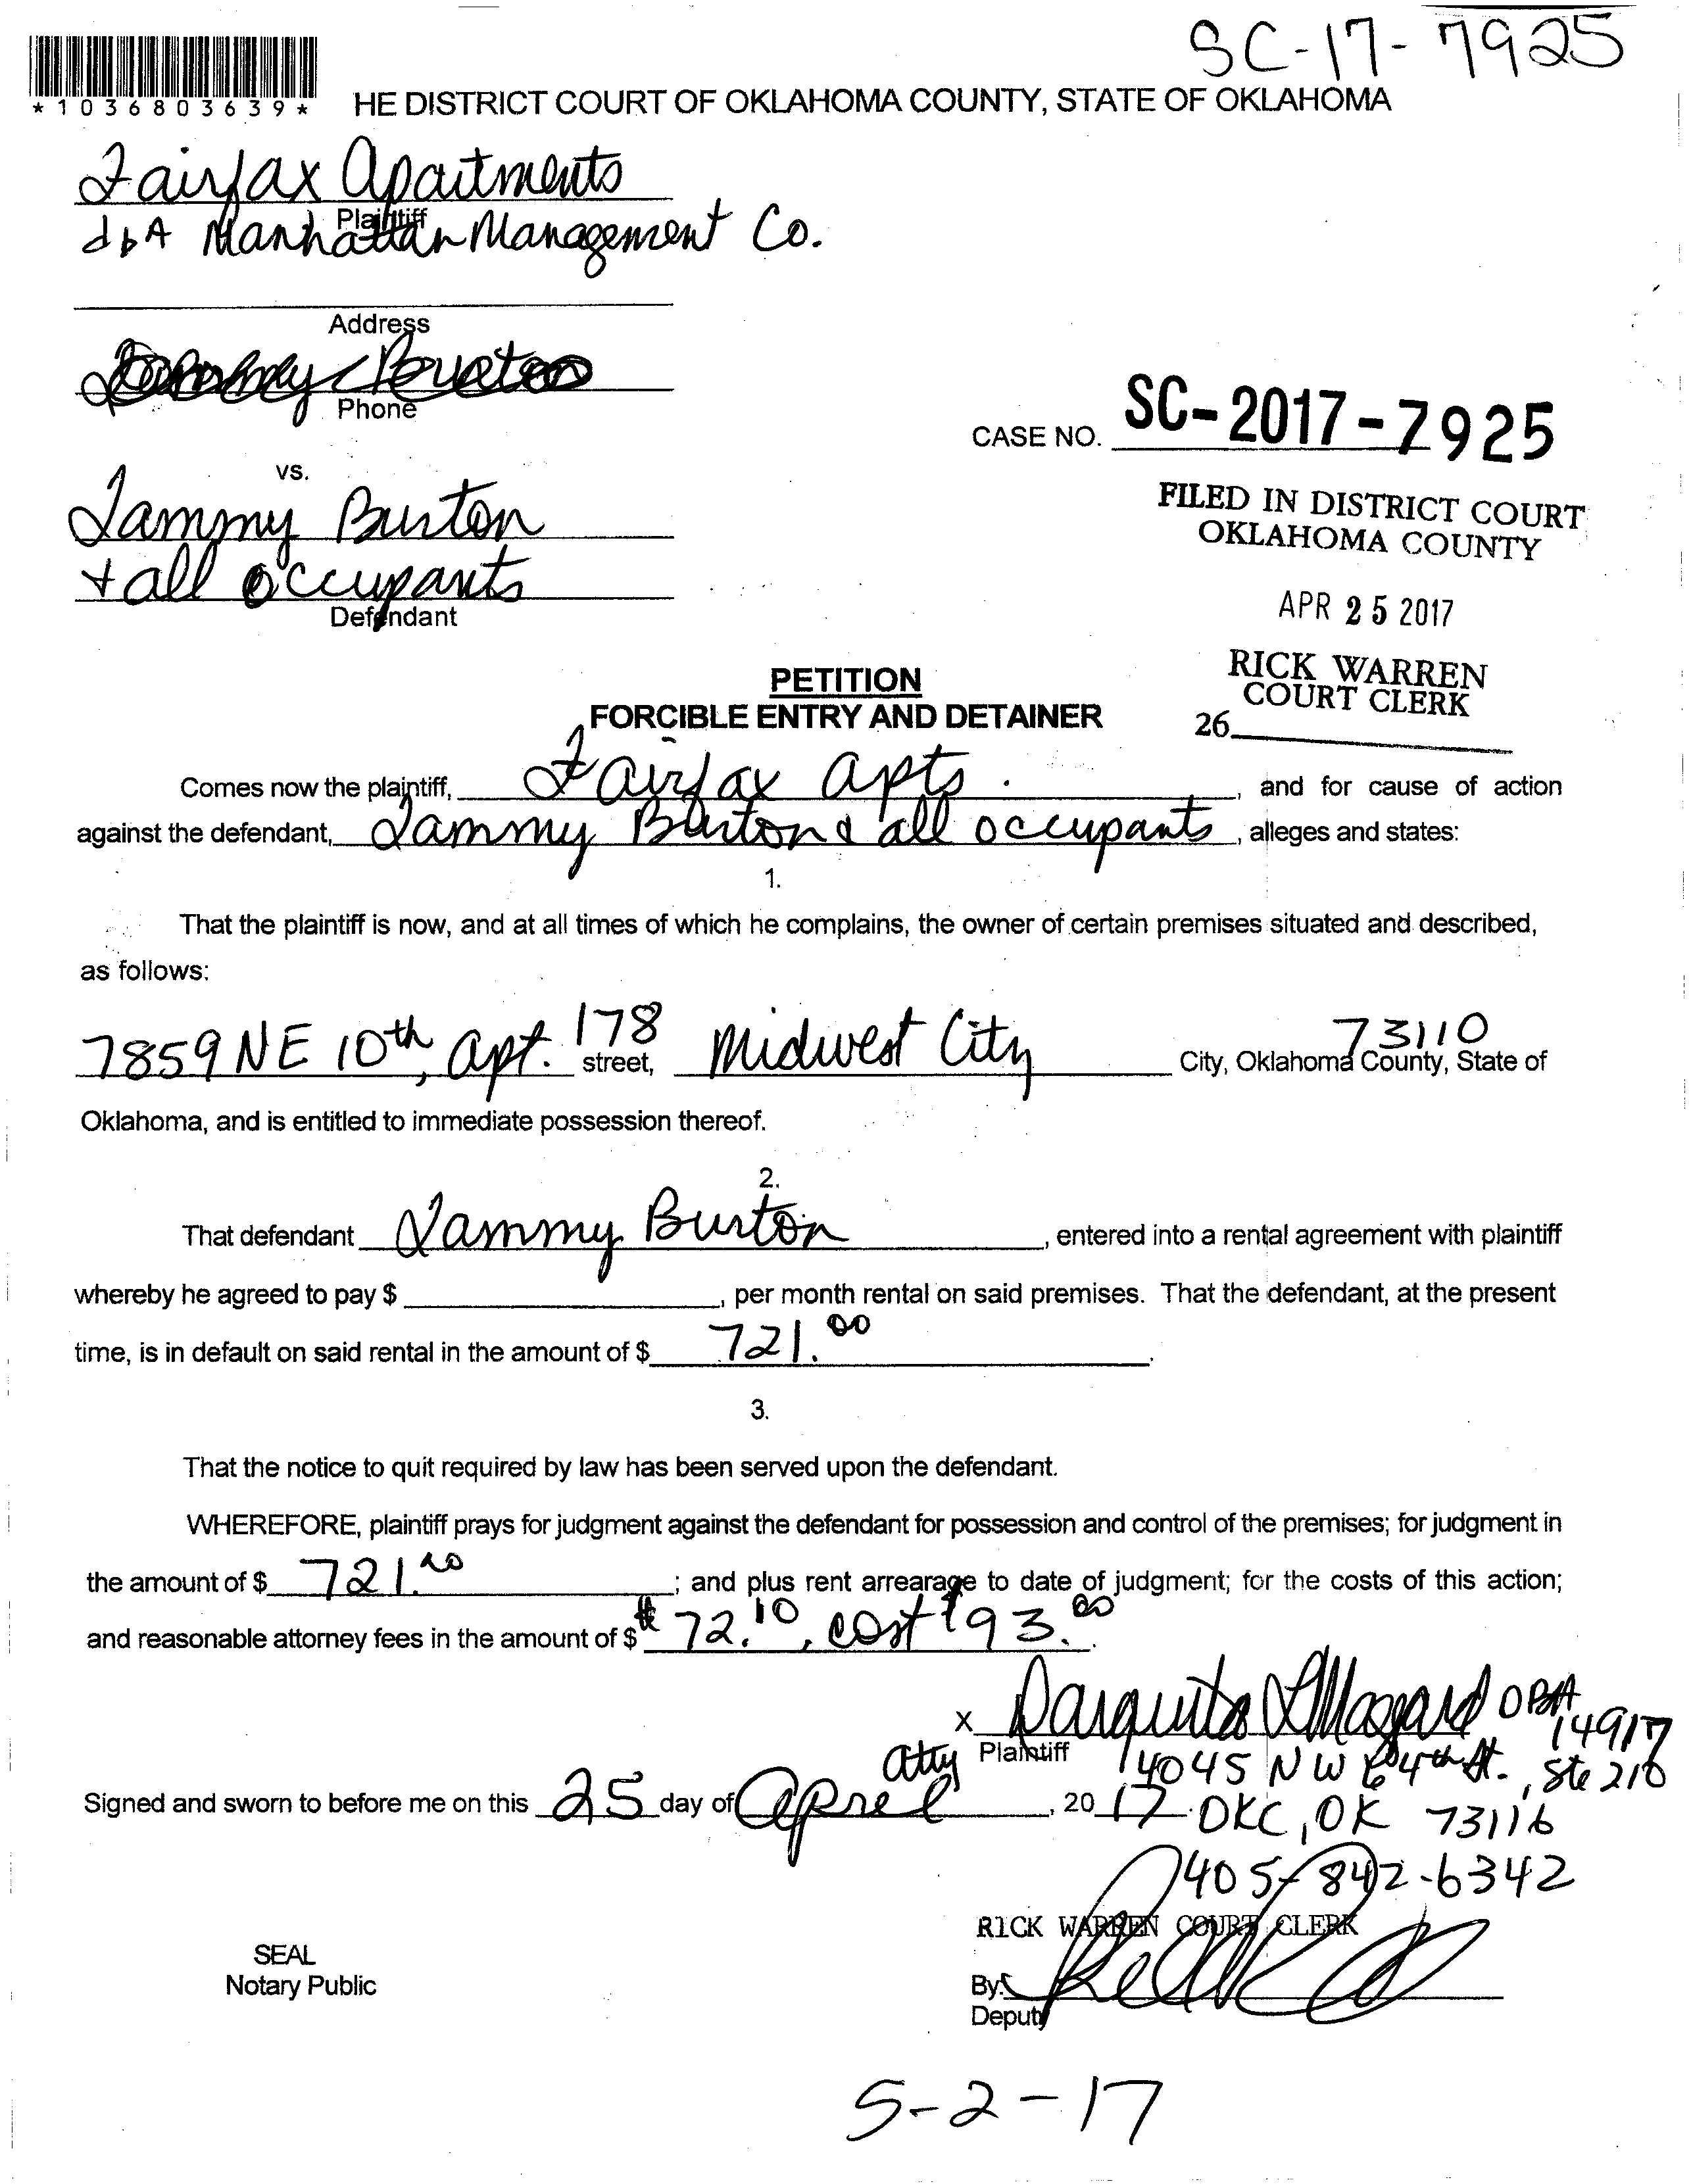 SC-17-7925
*1036803639*
HE DISTRICT COURT OF OKLAHOMA COUNTY, STATE OF OKLAHOMA
Fairfax Apartments
Plaintiff
dbA Manhattan Management Co.
Address
Phone
CASE NO. SC-2017-7925
vs.
Tammy Burton
+ all occupants
Defendant
FILED IN DISTRICT COURT
OKLAHOMA COUNTY
APR 25 2017
RICK WARREN
COURT CLERK
26
PETITION
FORCIBLE ENTRY AND DETAINER
Comes now the plaintiff, Fairfax Apts. , and for cause of action
against the defendant, Tammy Burton & all occupants , alleges and states:
1.
That the plaintiff is now, and at all times of which he complains, the owner of certain premises situated and described,
as follows:
7859 NE 10th, Apt. 178 street, Midwest City City, Oklahoma County, State of 73110
Oklahoma, and is entitled to immediate possession thereof.
2.
That defendant Tammy Burton , entered into a rental agreement with plaintiff
whereby he agreed to pay $ , per month rental on said premises. That the defendant, at the present
time, is in default on said rental in the amount of $ 721.00 .
3.
That the notice to quit required by law has been served upon the defendant.
WHEREFORE, plaintiff prays for judgment against the defendant for possession and control of the premises; for judgment in
the amount of $ 721.00 ; and plus rent arrearage to date of judgment; for the costs of this action;
and reasonable attorney fees in the amount of $ $72.10, cost $93.00 .
x OBA 14917
Atty Plaintiff 4045 NW 64th St., Ste 210
Signed and sworn to before me on this 25 day of April , 20 17 OKC, OK 73116
405-842-6342
RICK WARREN COURT CLERK
SEAL
Notary Public
By:
Deputy
5-2-17